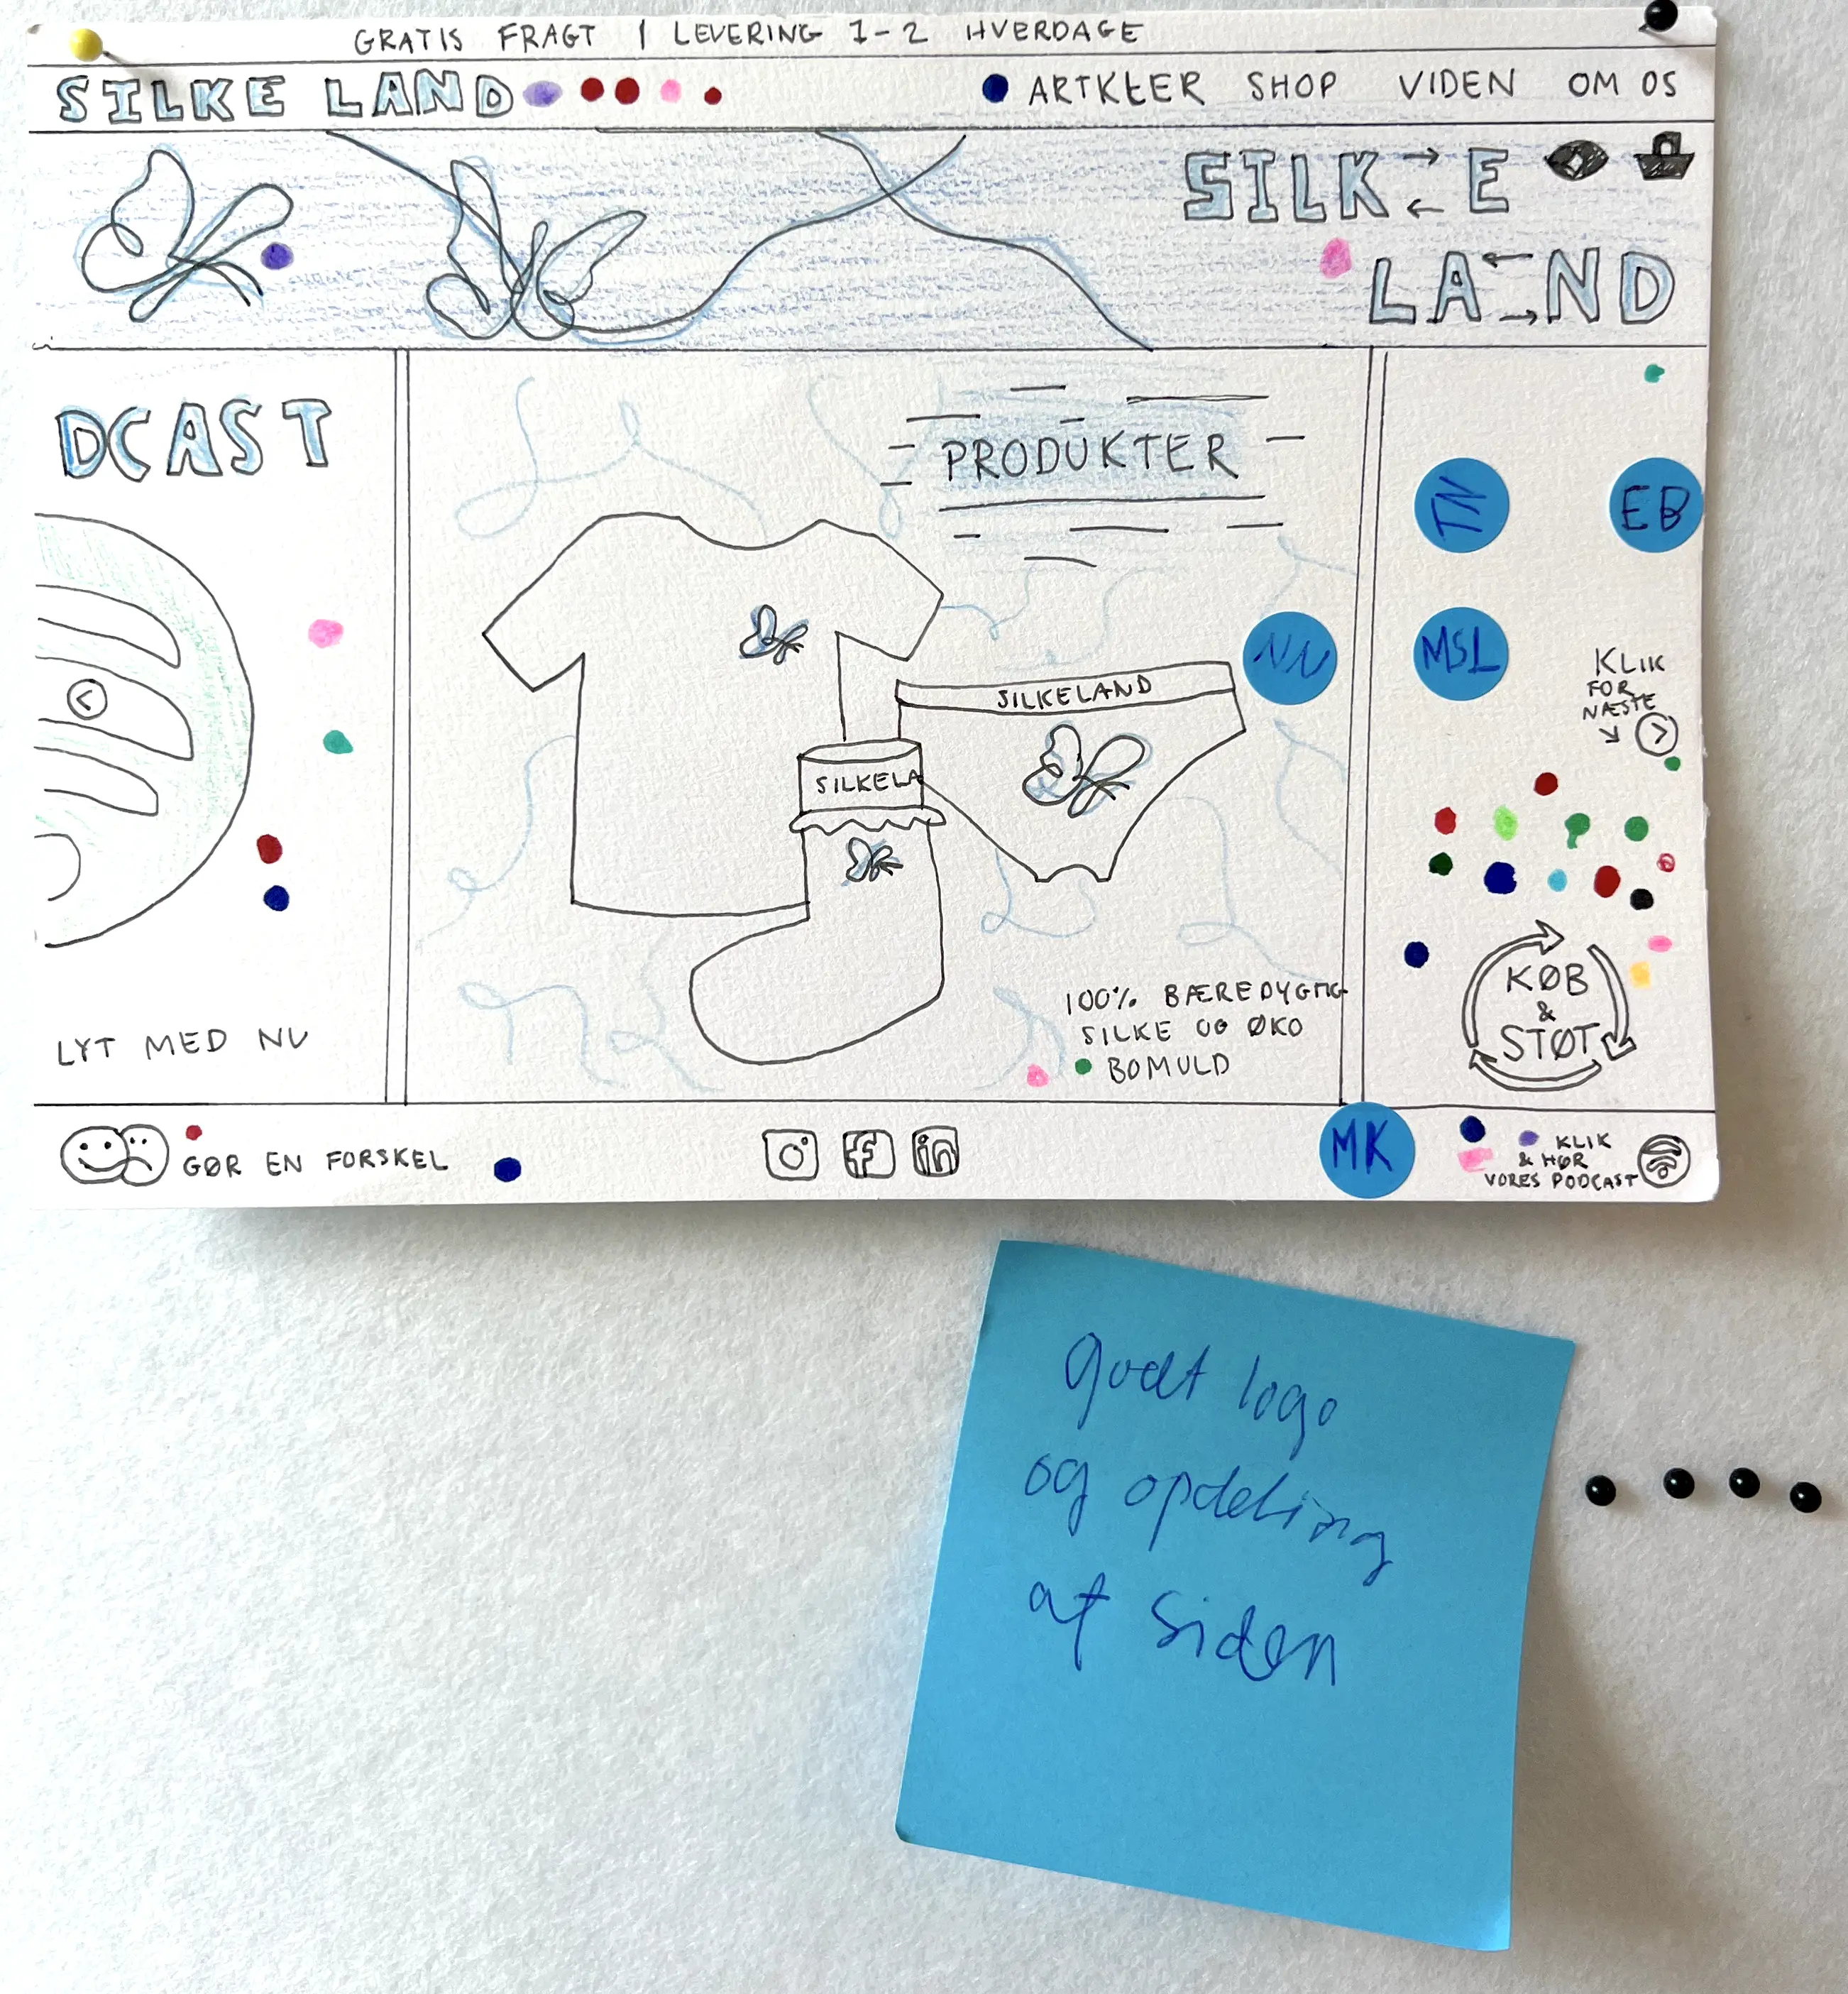 GRATIS FRAGT | LEVERING 1-2 HVERDAGE
SILKE LAND
ARTKLER SHOP VIDEN OM OS
SILK E
LA ND
DCAST
LYT MED NU
PRODUKTER
SILKELAND
SILKELA
100% BÆREDYGTIG
SILKE OG ØKO
BOMULD
TN
EB
NN
MSL
KLIK
FOR
NÆSTE
KØB
&
STØT
GØR EN FORSKEL
f
in
MK
KLIK
& HØR
VORES PODCAST
godt logo
og opdeling
af siden